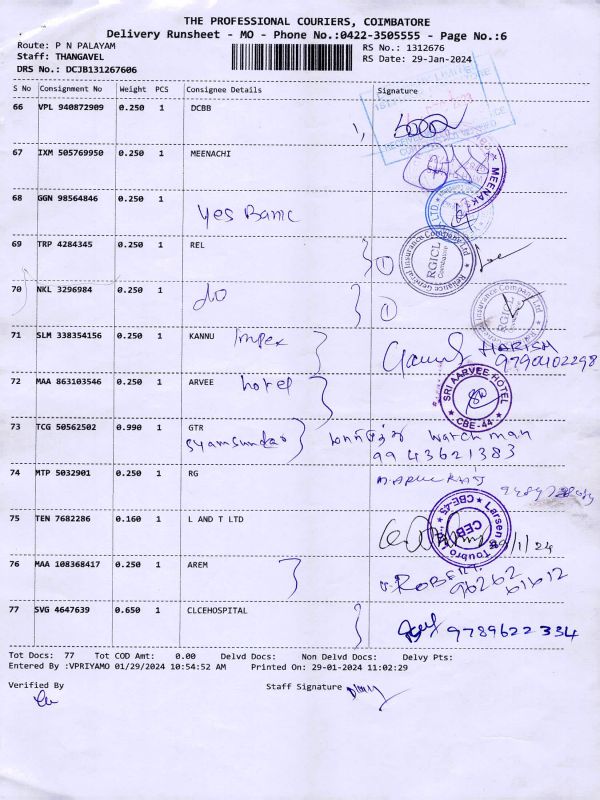 THE PROFESSIONAL COURIERS, COIMBATORE
Delivery Runsheet - MO - Phone No.:0422-3505555 - Page No.:6
Route: P N PALAYAM RS No.: 1312676
Staff: THANGAVEL RS Date: 29-Jan-2024
DRS No.: DCJB131267606
S No Consignment No Weight PCS Consignee Details Signature
66 VPL 940872909 0.250 1 DCBB
67 IXM 505769950 0.250 1 MEENACHI
68 GGN 98564846 0.250 1
Yes Banc
69 TRP 4284345 0.250 1 REL
Reliance General Insurance Company Ltd
RGICL
Coimbatore
70 NKL 3296984 0.250 1
do
Insurance Company Ltd
RGICL
71 SLM 338354156 0.250 1 KANNU Impex
HARISH
9790402298
72 MAA 863103546 0.250 1 ARVEE hotel
SRI AARVEE HOTEL
CBE-44
73 TCG 50562502 0.990 1 GTR
Syamsundar watchman
99 43621383
74 MTP 5032901 0.250 1 RG
75 TEN 7682286 0.160 1 L AND T LTD
Larsen & Toubro Ltd.,
CBE-45
CEB
/1/24
76 MAA 108368417 0.250 1 AREM
ROBERT
96262
61612
77 SVG 4647639 0.650 1 CLCEHOSPITAL
9789622334
Tot Docs: 77 Tot COD Amt: 0.00 Delvd Docs: Non Delvd Docs: Delvy Pts:
Entered By :VPRIYAMO 01/29/2024 10:54:52 AM Printed On: 29-01-2024 11:02:29
Verified By Staff Signature